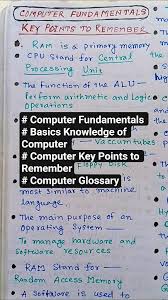 COMPUTER FUNDAMENTALS
KEY POINTS TO REMEMBER
RAM is a primary memory
CPU Stand for Central
Processing Unit
The Function of the ALU
Perform arithmetic and logic
Operations
# Computer Fundamentals
# Basics Knowledge of
Computer
# Computer Key Points to
Remember
# Computer Glossary
Vaccum tubes
Floppy Disk
most similar to machine
language.
The main purpose of an
Operating System
To manage hardware and
Software resources
RAM Stand for
Random Access Memory
A Software is used to